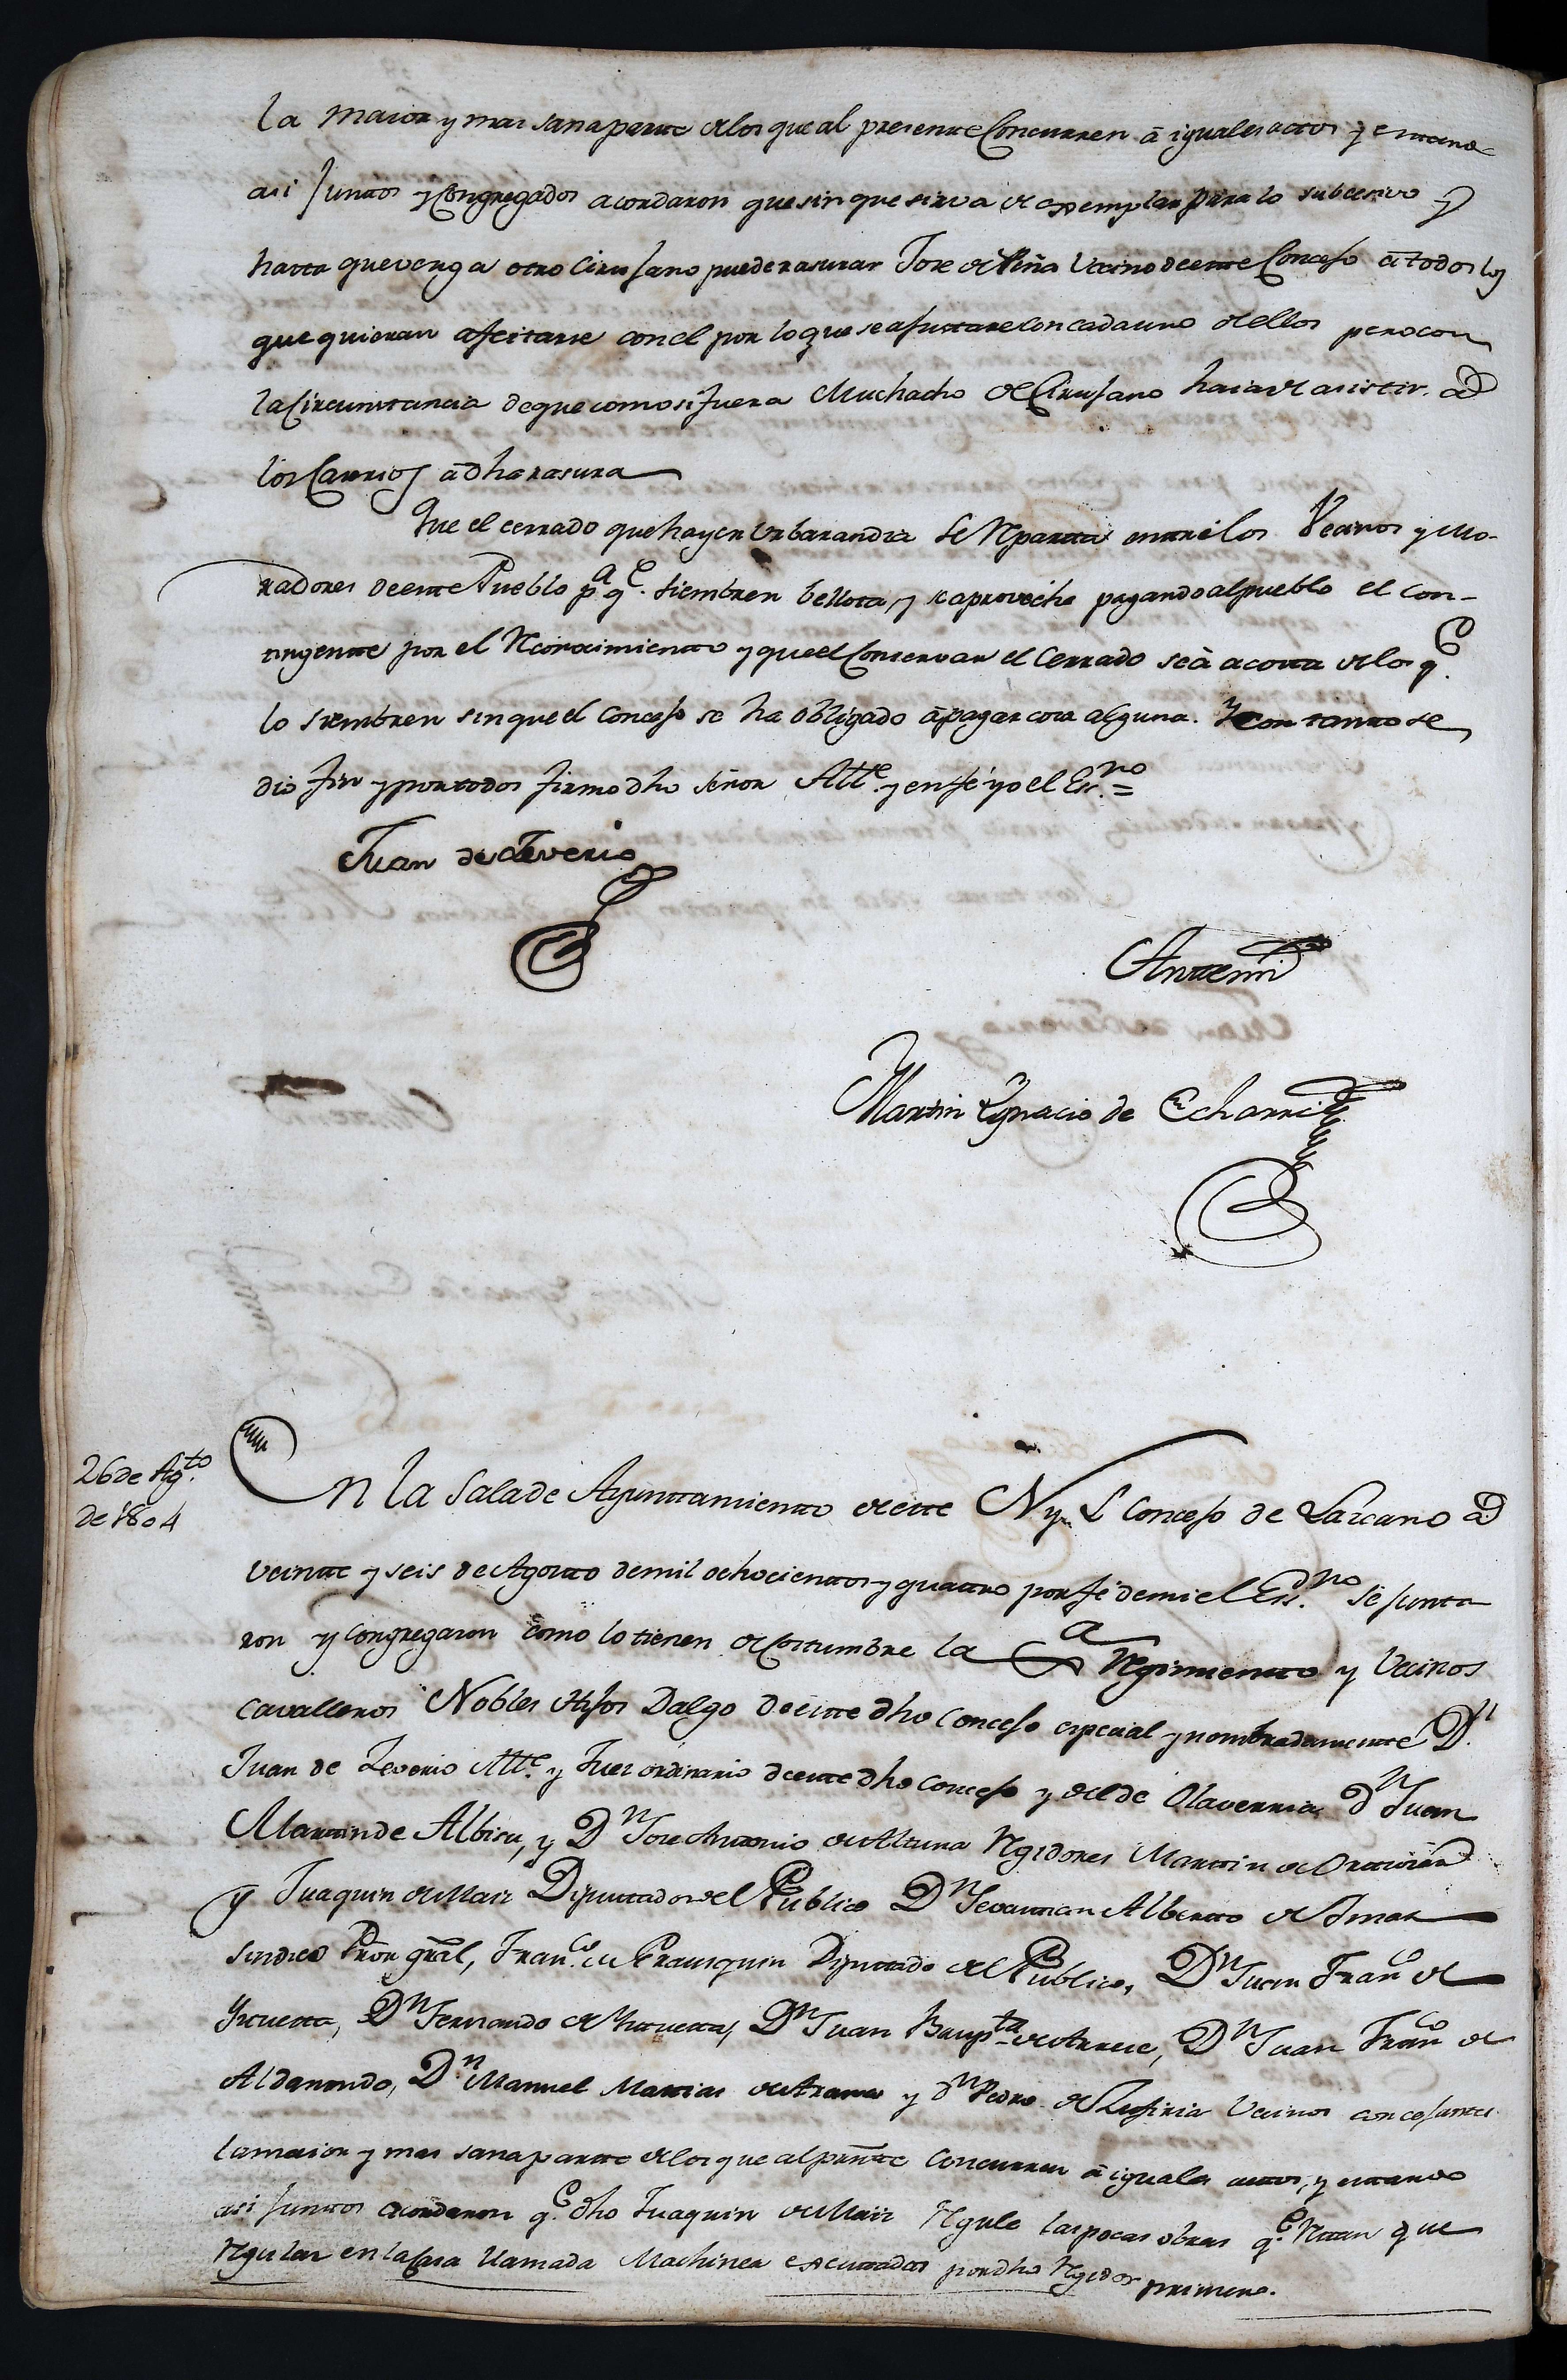 la maior y mas sana parte de los que al presente Concurren à iguales actos y estando
asi Juntos y Congregados acordaron que sin que sirva de exemplar para lo subcesivo y
hasta que venga otro Cirujano puede rasurar Jose de Viña Vecino de este Concejo à todos los
que quieran afeitarse con el por lo que se ajustare con cada uno de ellos pero con
la Circunstancia de que como si fuera Muchacho de Cirujano haia de asistir a
los Barrios à dha rasura
Que el cerrado que hay en Urbarandia se Reparta entre los Vecinos y Mo-
radores de este Pueblo pa. qe. siembren bellota y se aproveche pagando al pueblo el con-
tingente por el Reconocimiento y que el Conservar el Cerrado seà a costa de los qe.
lo siembren sin que el Concejo se ha obligado à pagar cosa alguna. Y con tanto se
dio fin y por todos firmo dho señor Alle. y en fé yo el Essno. =
Juan de Leverio
Ante mi
Martin Ygnacio de Echarri
26 de Agto.
de 1804
En la Sala de Ayuntamiento de este N. y L. Concejo de Lazcano a
veinte y seis de Agosto de mil ochocientos y quatro por fé de mi el Essno. se junta
ron y Congregaron como lo tienen de Costumbre la Regimiento y Vecinos
Cavalleros Nobles Hijos Dalgo de este dho Concejo especial y nombradamente Dn.
Juan de Leverio Alle. y Juez ordinario de este dho Concejo y de el de Olaverria Dn Juan
Martin de Albisu, y Dn Jose Antonio de Altuna Regidores Martin de
y Juaquin de Maiz Diputados del Publico Dn Sevastian Alberto de Imaz
Sindico Pror gral, Franco. de Diputado de el Publico, Dn Juan Franco de
Yrcueta, Dn Fernando de Yrcueta, Dn Juan Baupta de Arrese, Dn Juan Franco de
Aldanondo, Dn. Manuel Matias de Arana y Dn Pedro de Vecinos concejantes
la maior y mas sana parte de los que al presnte Concurren à iguales actos, y estando
asi Juntos acordaron qe. dho Juaquin de Maiz Regule las pocas obras qe. Restan que
Regular en la Casa llamada Machinea executadas por dho Regidor primero.